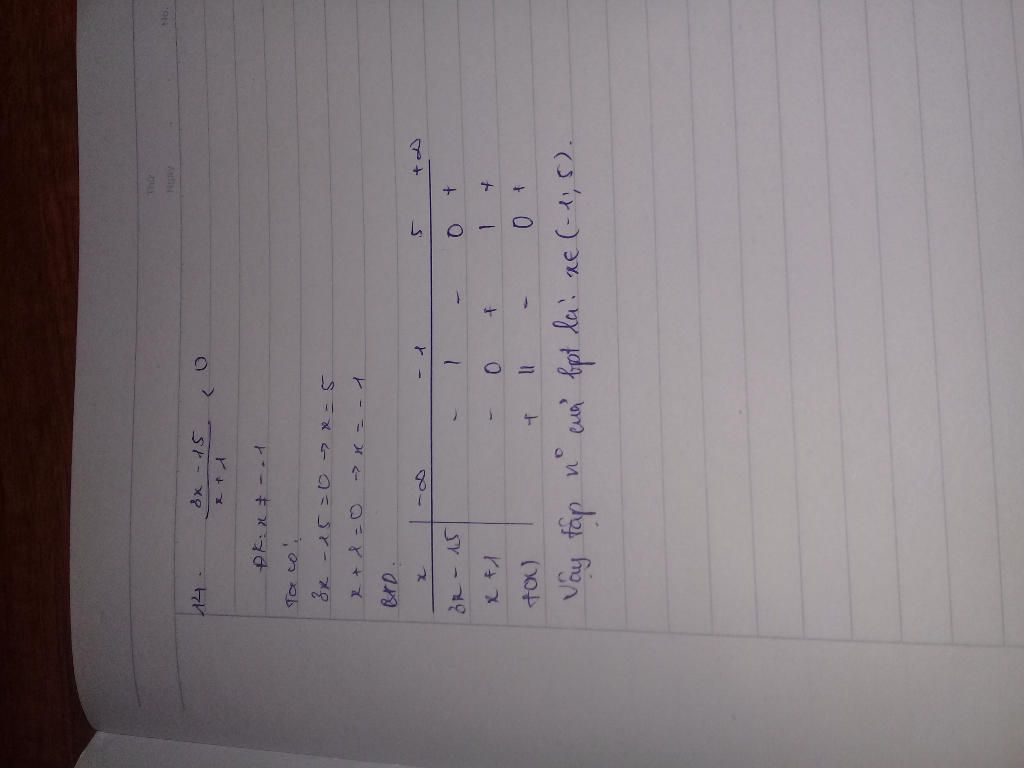 No.
Thứ
Ngày
14. (3x - 15)/(x + 1) < 0
ĐK: x ≠ -1
Ta có:
3x - 15 = 0 → x = 5
x + 1 = 0 → x = -1
BXD.
x -∞ -1 5 +∞
3x - 15 - | - 0 +
x + 1 - 0 + | +
f(x) + || - 0 +
Vậy tập n° của bpt là: x ∈ (-1; 5).